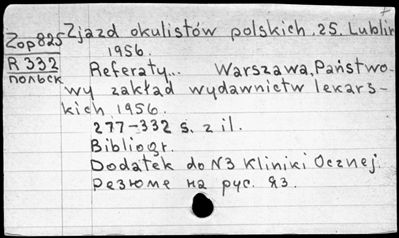 Zop825
R332
польск
Zjazd okulistów polskich. 25. Lublin
1956.
Referaty... Warszawa, Państwo-
wy zakład wydawnictw lekars-
kich, 1956.
277-332 s. z il.
Bibliogr.
Dodatek do N3 Kliniki Ocznej.
Резюме на рус. яз.